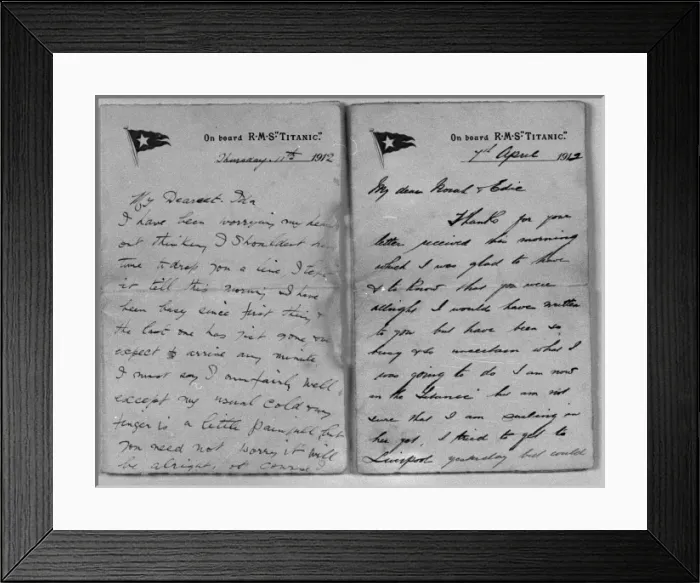 On board R·M·S "TITANIC."
Thursday. 11th 1912
My Dearest Ida
I have been worrying my
out thinking I shouldent
time to drop you a line, I
it till this I have
been busy since first thing
the last one has just gone
expect to arrive any minute
I must say I am fairly well
except my usual cold & my
finger is a little painfull, but
you need not worry it will
be alright, of course
On board R·M·S "TITANIC."
7th April 1912
My dear Norah & Edie
Thanks for your
letter received this morning
which I was glad to have
& to know that you were
allright I would have written
to you but have been so
busy & uncertain what I
was going to do I am now
in the "Titanic" but am not
sure that I am sailing in
her yet, I tried to get to
Liverpool yesterday but could